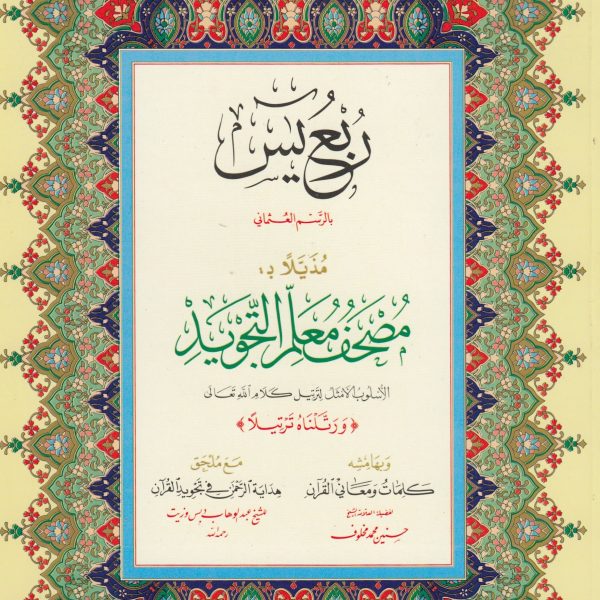 رُبُع يٰسٓ
بالرَّسم العُثماني
مُذَيَّلًا بـ :
مُصْحَفُ مُعَلِّمُ التَّجْوِيدِ
الأسلوب الأمثل لترتيل كلام الله تعالى
﴿ وَرَتَّلْنَاهُ تَرْتِيلًا ﴾
وبهامشه
كلمات ومعاني القرآن
لفضيلة العلامة الشيخ
حسنين محمد مخلوف
مع ملحق
هداية الرحمن في تجويد القرآن
للشيخ عبد الوهاب دبس وزيت
رحمه الله